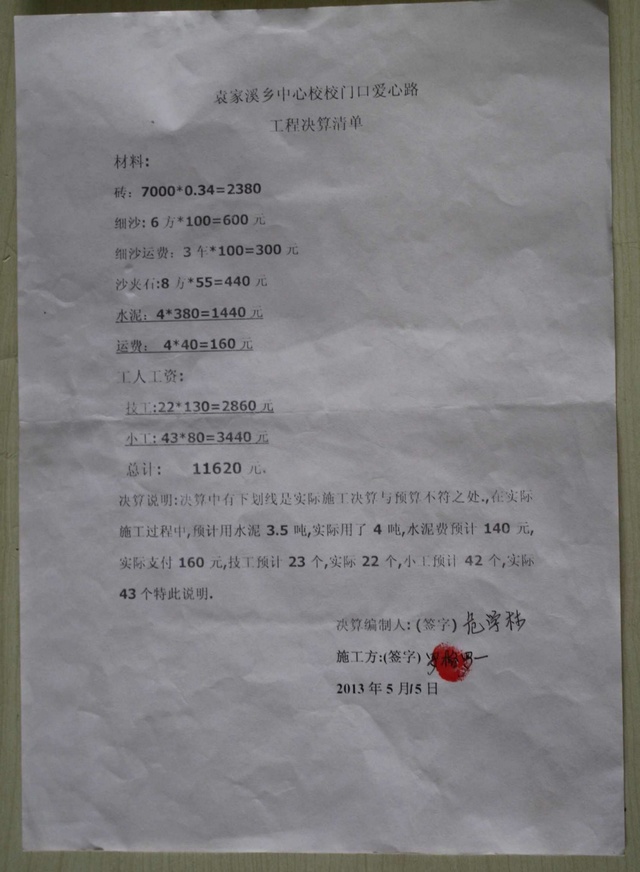 袁家溪乡中心校校门口爱心路
工程决算清单
材料:
砖: 7000*0.34=2380
细沙: 6 方*100=600 元
细沙运费: 3 车*100=300 元
沙夹石:8 方*55=440 元
水泥: 4*380=1440 元
运费: 4*40=160 元
工人工资:
技工:22*130=2860 元
小工: 43*80=3440 元
总计: 11620 元。
决算说明:决算中有下划线是实际施工决算与预算不符之处.,在实际
施工过程中,预计用水泥 3.5 吨,实际用了 4 吨,水泥费预计 140 元,
实际支付 160 元,技工预计 23 个,实际 22 个,小工预计 42 个,实际
43 个特此说明.
决算编制人: (签字)
施工方:(签字)
2013 年 5 月/5 日